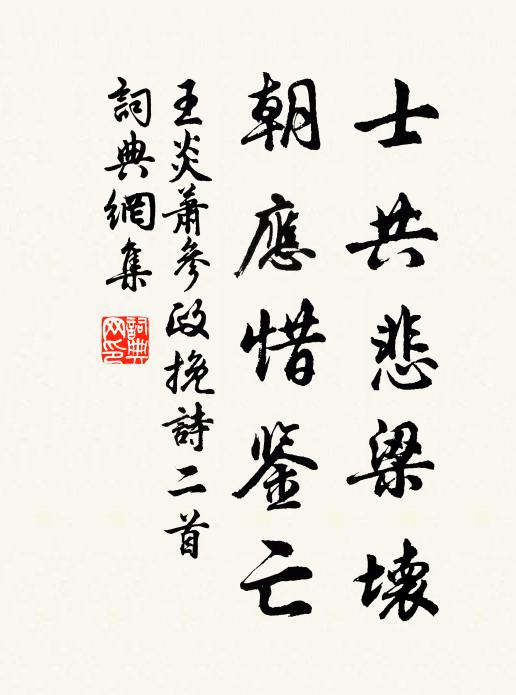 士共悲梁壞
朝應惜鉴亡
王炎蕭參政挽詩二首
詞典網集
詞典網印